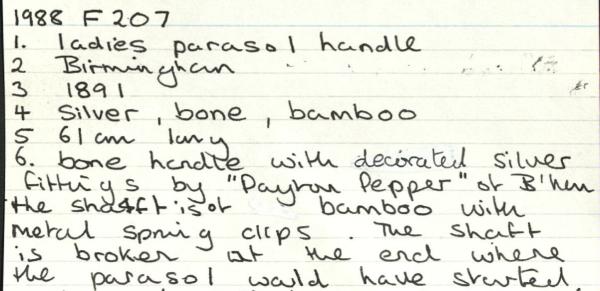 1988 F 207
1. ladies parasol handle
2 Birmingham
3 1891
4 Silver, bone, bamboo
5 61cm long
6. bone handle with decorated silver
fittings by "Payton Pepper" of B'ham
the shaft is of bamboo with
metal spring clips. The shaft
is broken at the end where
the parasol would have started